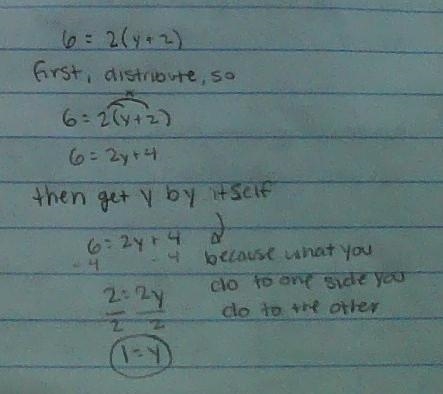 6 = 2(y+2)
first, distribute, so
6 = 2(y+2)
6 = 2y+4
then get y by itself
6 = 2y + 4
-4 -4
because what you
do to one side you
do to the other
2 = 2y
2 2
1 = y